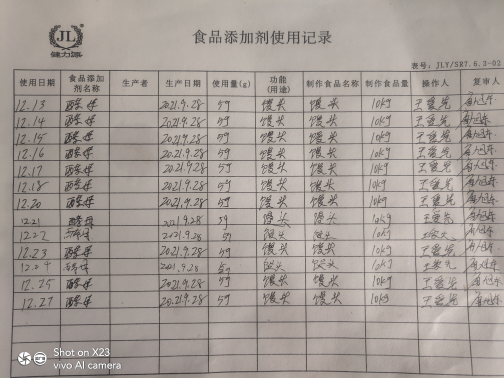 JL
健力源
食品添加剂使用记录
表号：JLY/SR7.6.3-02
使用日期 食品添加剂名称 生产者 生产日期 使用量(g) 功能(用途) 制作食品名称 制作食品量 操作人 复审人
12.13 酵母 2021.9.28 5g 馒头 馒头 10kg
12.14 酵母 2021.9.28 5g 馒头 馒头 10kg
12.15 酵母 2021.9.28 5g 馒头 馒头 10kg
12.16 酵母 2021.9.28 5g 馒头 馒头 10kg
12.17 酵母 2021.9.28 5g 馒头 馒头 10kg
12.18 酵母 2021.9.28 5g 馒头 馒头 10kg
12.20 酵母 2021.9.28 5g 馒头 馒头 10kg
12.21 酵母 2021.9.28 5g 馒头 馒头 10kg
12.22 酵母 2021.9.28 5g 馒头 馒头 10kg
12.23 酵母 2021.9.28 5g 馒头 馒头 10kg
12.24 酵母 2021.9.28 5g 馒头 馒头 10kg
12.25 酵母 2021.9.28 5g 馒头 馒头 10kg
12.27 酵母 2021.9.28 5g 馒头 馒头 10kg
Shot on X23
vivo AI camera